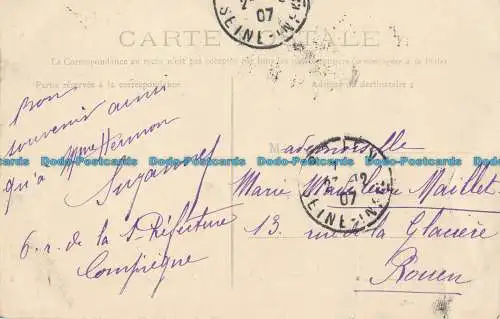 2
07
SEINE-INFRE
CARTE POSTALE
La Correspondance au recto n'est pas acceptée par tous les
à la Poste
Partie réservée à la correspondance
Adresse du destinataire
Bon
souvenir ainsi
qu'à Mme Hermon
Suzanne
6. r. de la S-Préfecture
Compiègne
Mademoiselle
Marie Maillet
13 rue de la Glacière
Rouen
12
07
SEINE-INFRE
Dodo-Postcards Dodo-Postcards Dodo-Postcards Dodo-Postcards Dodo-Postcards Dodo-Postcards